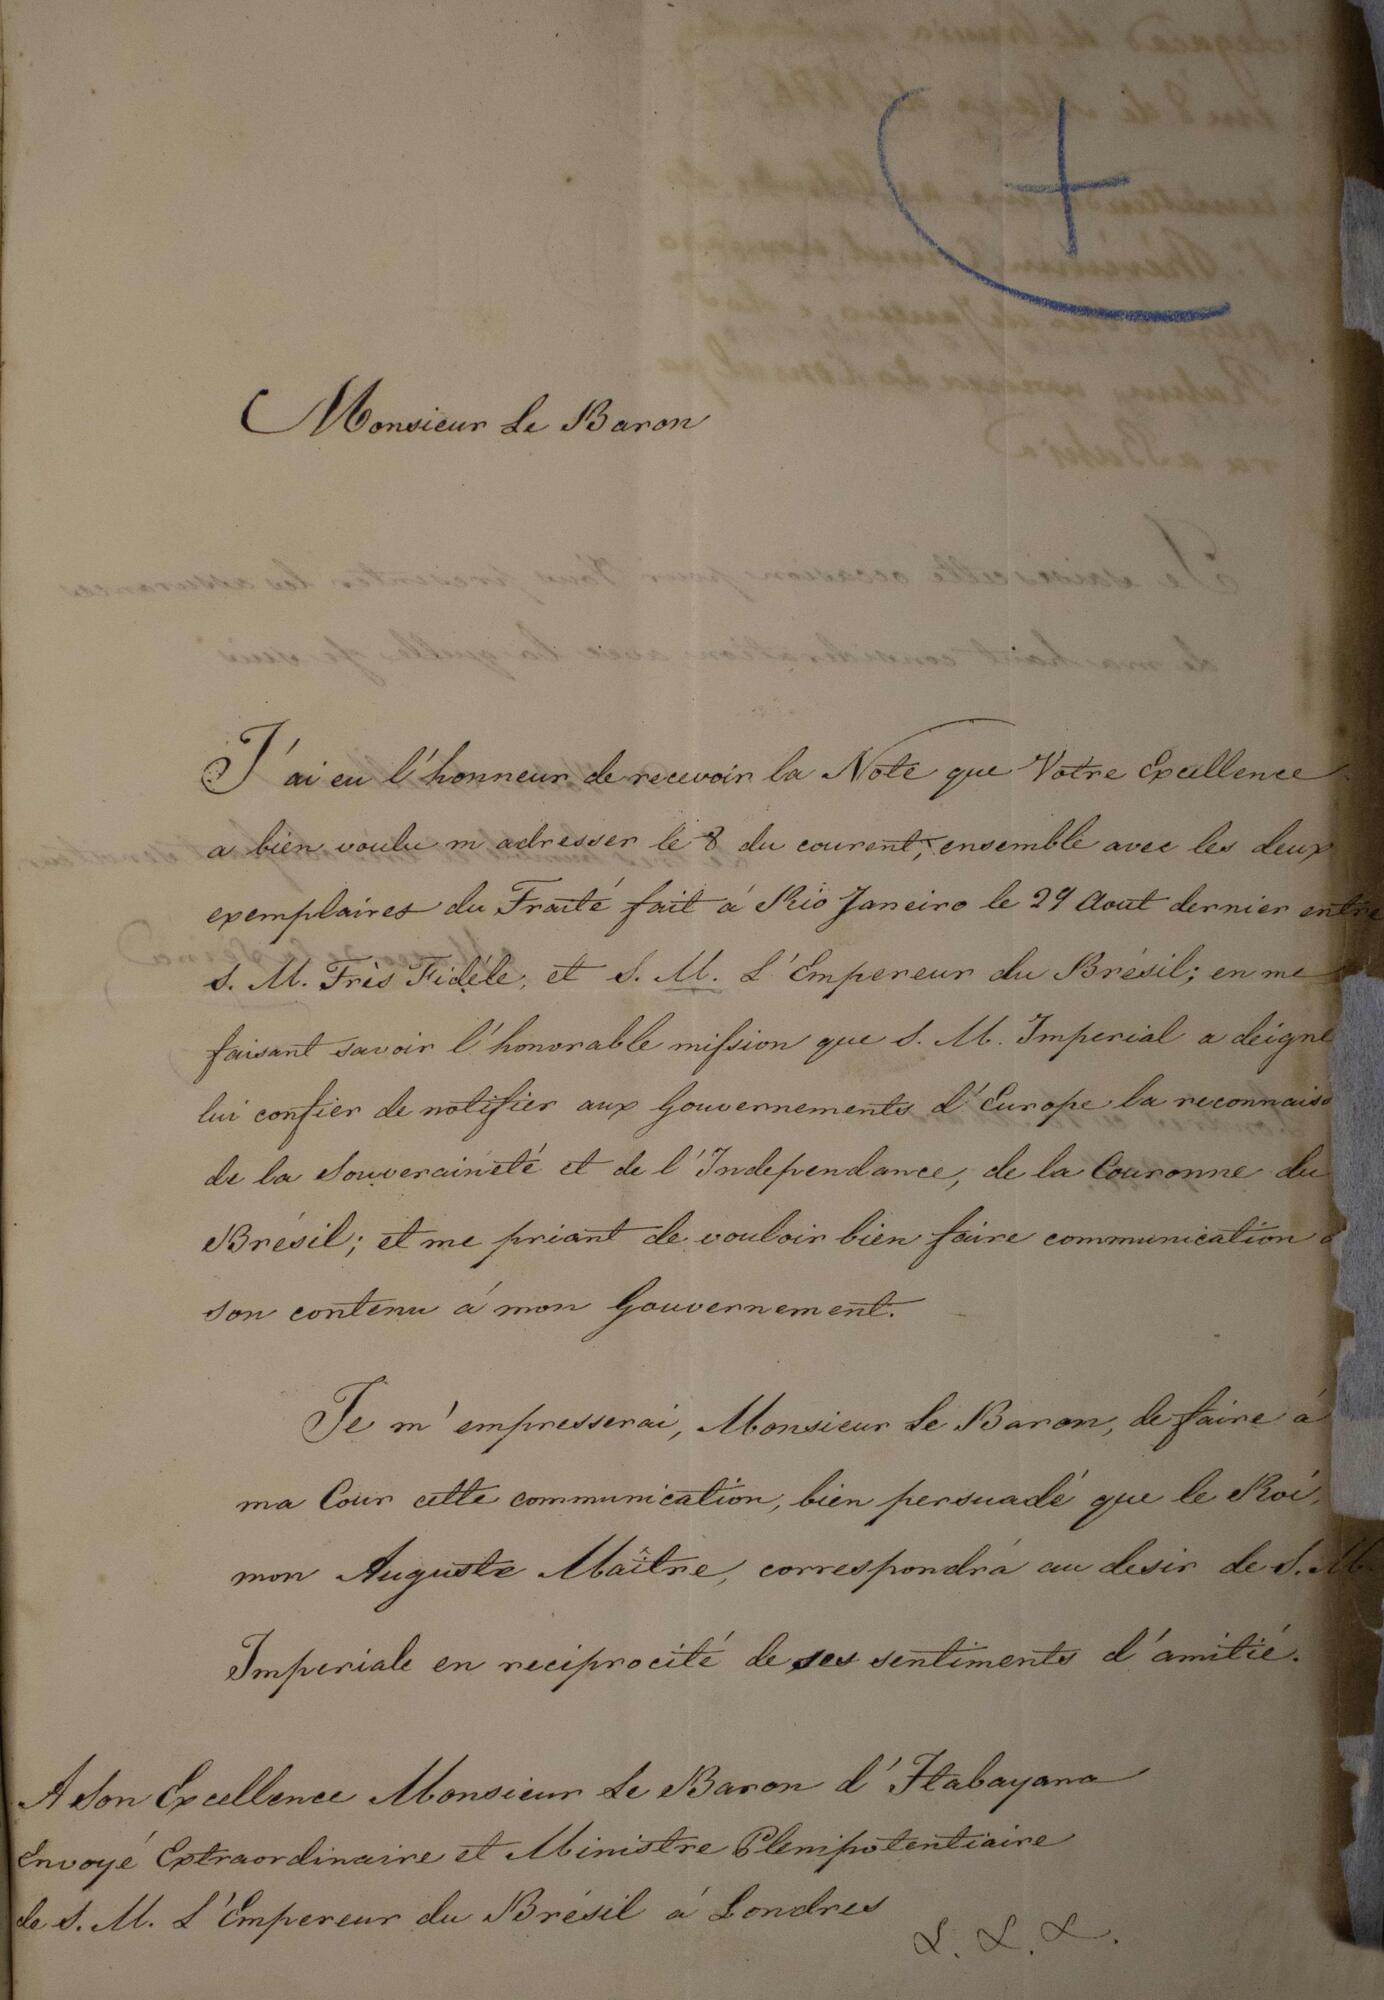 Monsieur Le Baron
J'ai eu l'honneur de recevoir la Note que Votre Excellence
a bien voulu m adresser le 8 du courent, ensemble avec les deux
exemplaires du Traité fait á Rio Janeiro le 29 Aout dernier entre
S. M. Très Fidéle, et S. M. L'Empereur du Brésil; en me
faisant savoir l'honorable mission que S. M. Imperial a deigne
lui confier de notifier aux Gouvernements d'Europe la reconnaiss
de la Souveraineté et de l'Independance, de la Couronne du
Brésil; et me priant de vouloir bien faire communication
son contenu á mon Gouvernement.
Je m'empresserai, Monsieur Le Baron, de faire á
ma Cour cette communication, bien persuadé que le Roi,
mon Auguste Maître, correspondra au desir de S. M.
Imperiale en reciprocité de ses sentiments d'amitié.
A Son Excellence Monsieur Le Baron d'Itabayana
Envoyé Extraordinaire et Ministre Plenipotentiaire
de S. M. L'Empereur du Brésil á Londres
&. &. &.